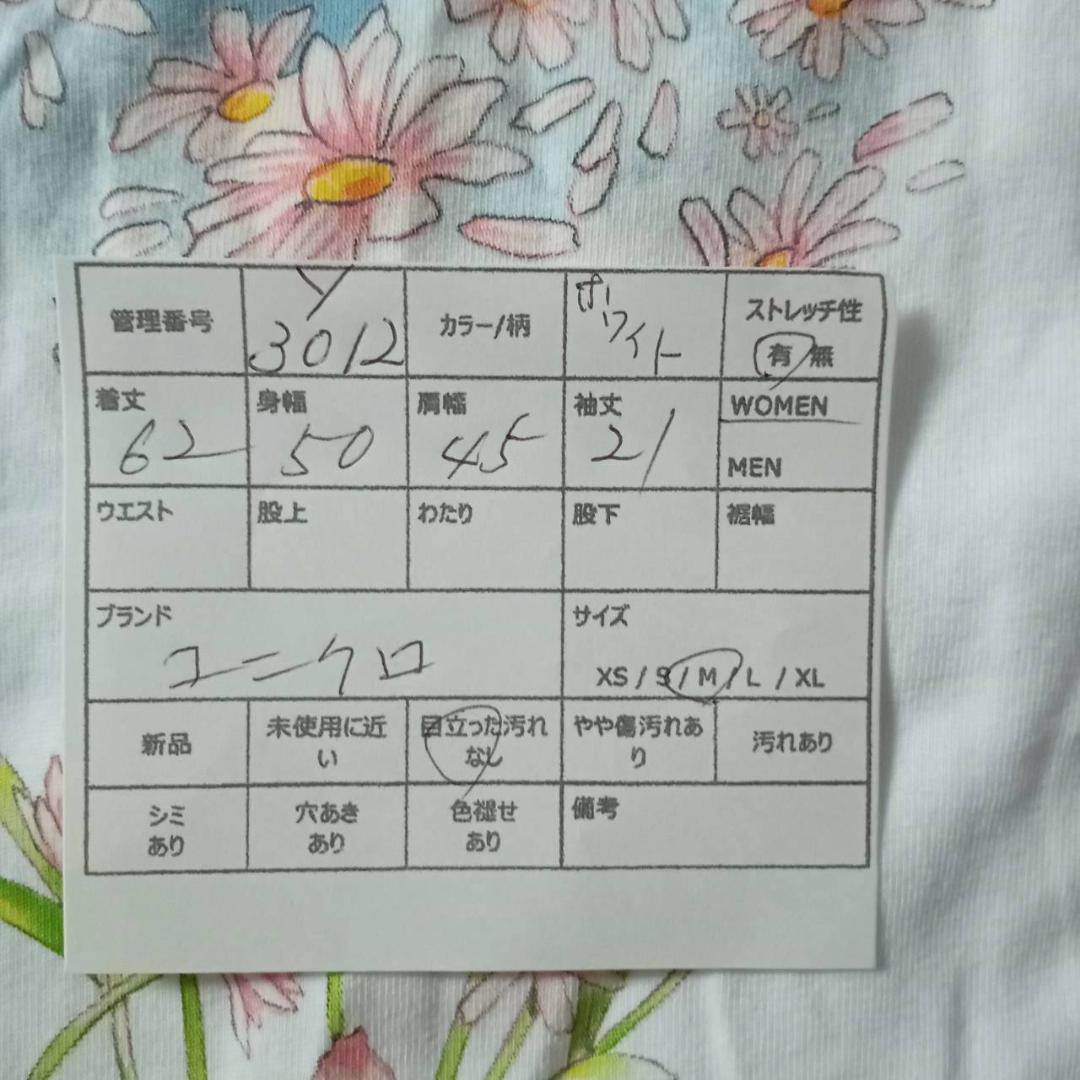 管理番号
Y
3012
カラー/柄
ホワイト
ストレッチ性
有 無
着丈
62
身幅
50
肩幅
45
袖丈
21
WOMEN
MEN
ウエスト
股上
わたり
股下
裾幅
ブランド
ユニクロ
サイズ
XS / S / M / L / XL
新品
未使用に近
い
目立った汚れ
なし
やや傷汚れあ
り
汚れあり
シミ
あり
穴あき
あり
色褪せ
あり
備考